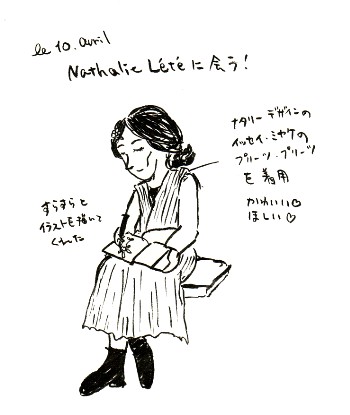 le 10. avril
Nathalie Lété に会う!
ナタリーデザインの
イッセイ・ミヤケの
プリーツ・プリーツ
を着用
かわいい♡
ほしい♡
すらすらと
イラストを描いて
くれた